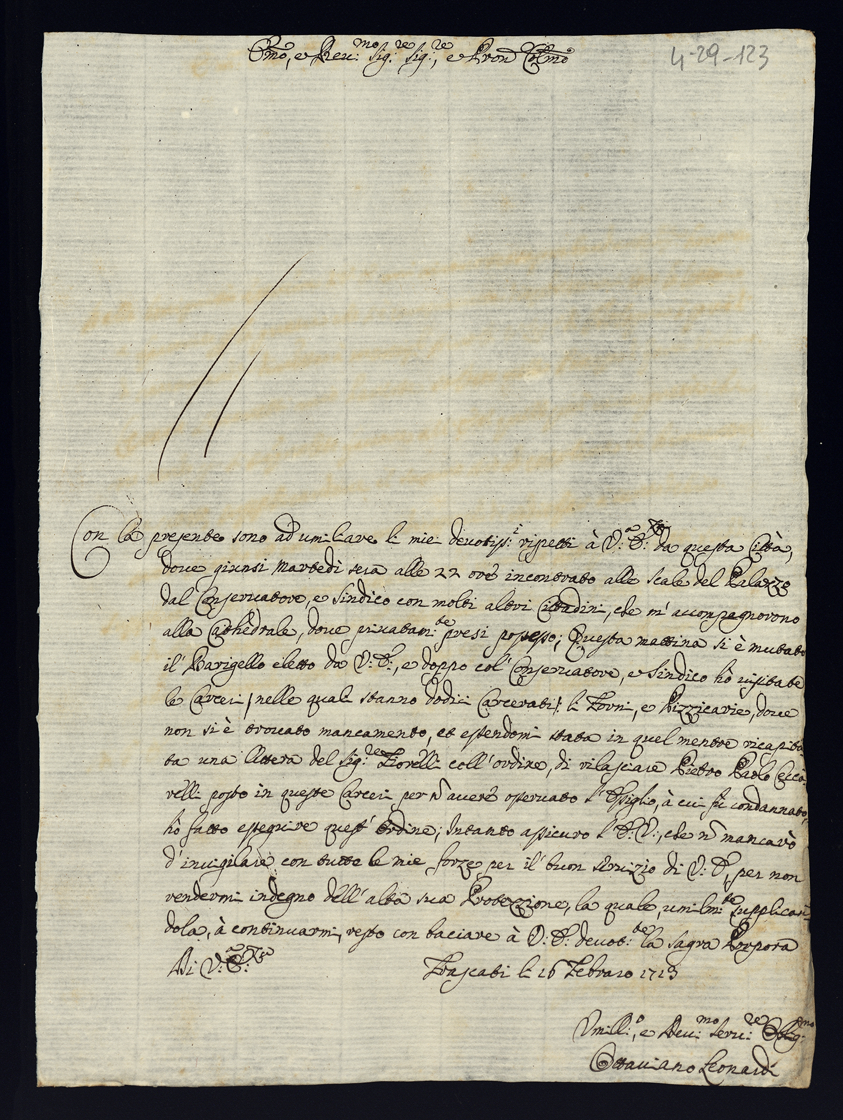 Em̃o, e Reu:mo Sig:re Sig:re, e Pron Col̃mo
4-29-123
Con la presente sono ad umiliare li miei deuotiss:i rispetti à V:a E:za da questa Città,
doue giunsi Martedi sera alle 22 ore incontrato alle scale del Palazzo
dal Conseruatore, e Sindico con molti altri Cittadini, che m'accompagnorono
alla Cathedrale, doue priuatam:te presi possesso; Questa mattina si è mutato
il Barigello eletto da V:E:, e doppo col' Conseruatore, e Sindico hò uisitate
le Carceri /nelle quali stanno dodici Carcerati/ li Forni, e Pizzicarie, doue
non si è trouato mancamento, et essendomi stata in quel mentre ricapita
ta una lettera del Sig:re Fiorelli coll'ordine, di rilasciare Pietro Paolo Cecca
relli posto in queste Carceri per ñ auere osseruato l'Esiglio, à cui fù condannato,
hò fatto esseguire quest'ordine; Intanto assicuro l'E:V:, che ñ mancarò
d'inuigilare con tutte le mie forze per il buon seruizio di V:E, per non
rendermi indegno dell'alta sua Protezzione, la quale umilm:te supplican
dola, à continuarmi, resto con baciare à V:E: deuot:te la Sagra Porpora
Di V:a E:za
Frascati li 16 Febraro 1713
Umilli:o, e Deu:mo Seru:re Oblig:mo
Ottauiano Leonardi